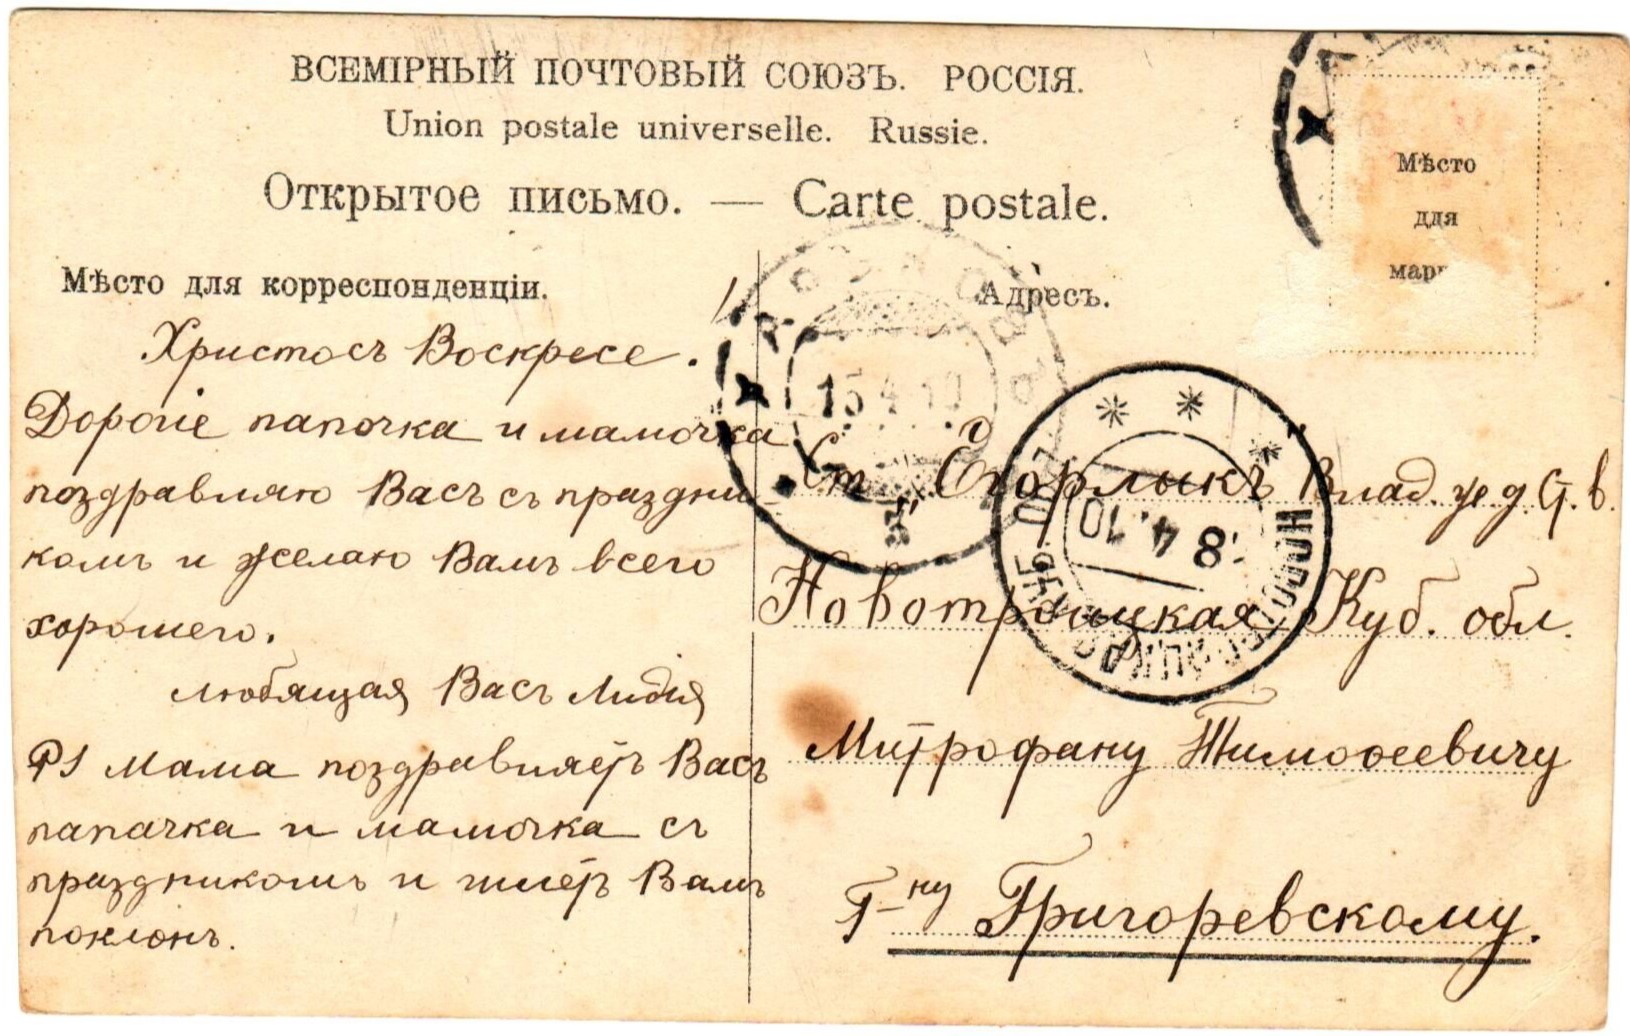 ВСЕМІРНЫЙ ПОЧТОВЫЙ СОЮЗЪ. РОССІЯ.
Union postale universelle. Russie.
Открытое письмо. — Carte postale.
Мѣсто
для
Мѣсто для корреспонденціи.
Христосъ Воскресе.
Дорогіе папочка и мамочка
поздравляю Васъ съ праздни-
комъ и желаю Вамъ всего
хорошего.
любящая Васъ Лидія
PS Мама поздравляетъ Васъ
папачка и мамочка съ
праздникомъ и шлетъ Вамъ
поклонъ.
Адресъ.
Ст. „Егорлыкъ" Влад. же. д. Ст. в.
Новотроицкая Куб. обл.
Митрофану Тимоѳеевичу
Г-ну Григоревскому.
15 4 10
8 4.10